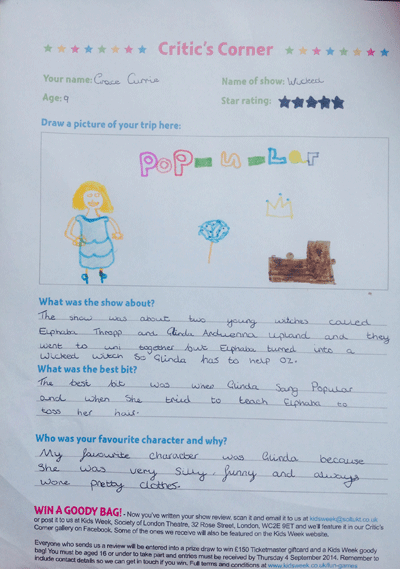 Critic's Corner
Your name: Grace Currie Name of show: Wicked
Age: 9 Star rating:
Draw a picture of your trip here:
POP-U-Lar
What was the show about?
The show was about two young witches called
Elphaba Thropp and Glinda Upland and they
went to uni together but Elphaba turned into a
Wicked Witch so Glinda has to help Oz.
What was the best bit?
The best bit was when Glinda Sang Popular
and when She tried to teach Elphaba to
toss her hair.
Who was your favourite character and why?
My favourite character was Glinda because
She was very silly, funny and always
wore pretty clothes.
WIN A GOODY BAG! - Now you've written your show review, scan it and email it to us at kidsweek@solt.co.uk
or post it to us at Kids Week, Society of London Theatre, 32 Rose Street, London, WC2E 9ET and we'll feature it in our Critic's
Corner gallery on Facebook. Some of the ones we receive will also be featured on the Kids Week website.
Everyone who sends us a review will be entered into a prize draw to win £150 Ticketmaster giftcard and a Kids Week goody
bag! You must be aged 16 or under to take part and entries must be received by Thursday 4 September 2014. Remember to
include contact details so we can get in touch if you win. Full terms and conditions at www.kidsweek.co.uk/fun-games